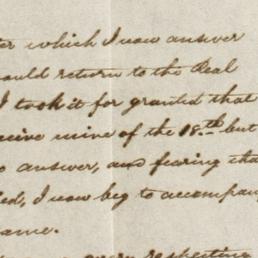 ter which I now answer
ould return to the Real
I took it for granted that
ceive mine of the 18.th but
o answer, and fearing tha
led, I now beg to accompany
ame.
every respecting